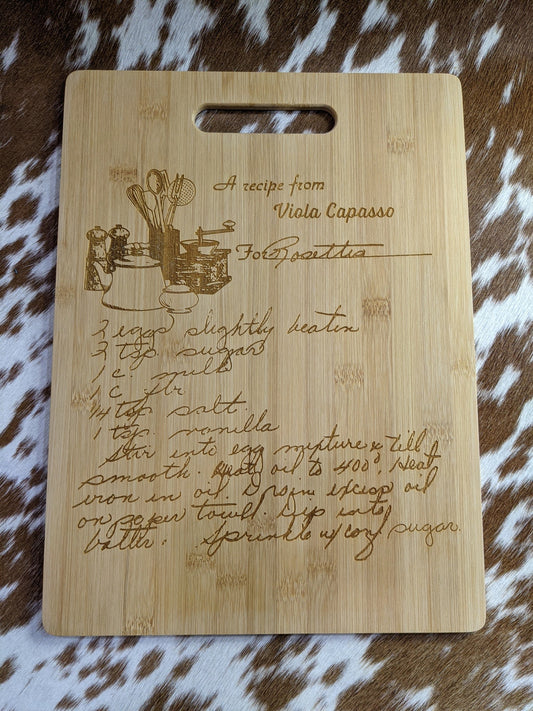 A recipe from
Viola Capasso
For Rosettes
2 eggs slightly beaten
2 tsp sugar
1 c. milk
1 c flr
1/4 tsp salt.
1 tsp. vanilla
Stir into egg mixture & till
smooth. Heat oil to 400°, Heat
iron in oil. Drain excess oil
on paper towel. Dip into
batter. Sprinkle w/conf sugar.